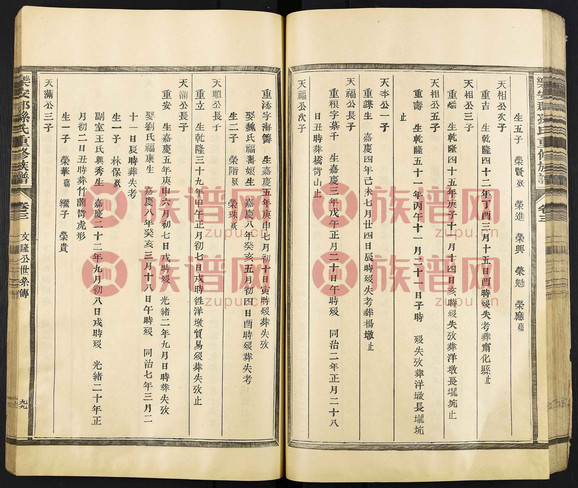 生五子 榮賢 榮進 榮興 榮勉 榮應
天相公次子
重吉 生乾隆四十二年丁酉三月十五日酉時歿失考葬甯化縣止
天相公三子
重瑞 生乾隆四十五年庚子十一月十四日亥時歿失攷葬洋墩長壠
重壽 生乾隆五十一年丙午十一月二十一日子時 歿失攷葬洋墩長壠
天李公一子
重譁生 嘉慶四年己未七月廿四日辰時歿失考葬楊墩止
天福公長子
重 字 生嘉慶三年戊午正月二十七日 時歿 同治二年正月二十八
日丑時葬 山止
天福公次子
重添字海 生嘉慶五年庚申七月初十日寅時歿葬失攷
娶魏氏福 嘉慶八年癸亥五月初四日戌時歿葬失考
生二子 榮階 榮珠
天順公長子
重立 生乾隆三十九年甲午正月初七日戌時 洋墩貿易歿葬失攷止
天滿公長子
重安 生嘉慶五年庚申六月初七日戌時歿 光緒二年九月日時葬失攷
娶劉氏福康生 嘉慶八年癸亥三月十八日午時歿 同治七年三月二
十一日辰時葬失考
生一子 林保
副室王氏興秀生 嘉慶二十二年九月初八日戌時歿 光緒二十年正
月初二日丑時葬竹 虎形
生一子 榮華 子 榮貴
天滿公三子
樂安郡孫氏重修族譜 卷三 文隆公世系傳
樂安郡孫氏重修族譜 卷三
族谱网
zupu.cn
族谱网
zupu.cn
族谱网
zupu.cn
族谱网
zupu.cn